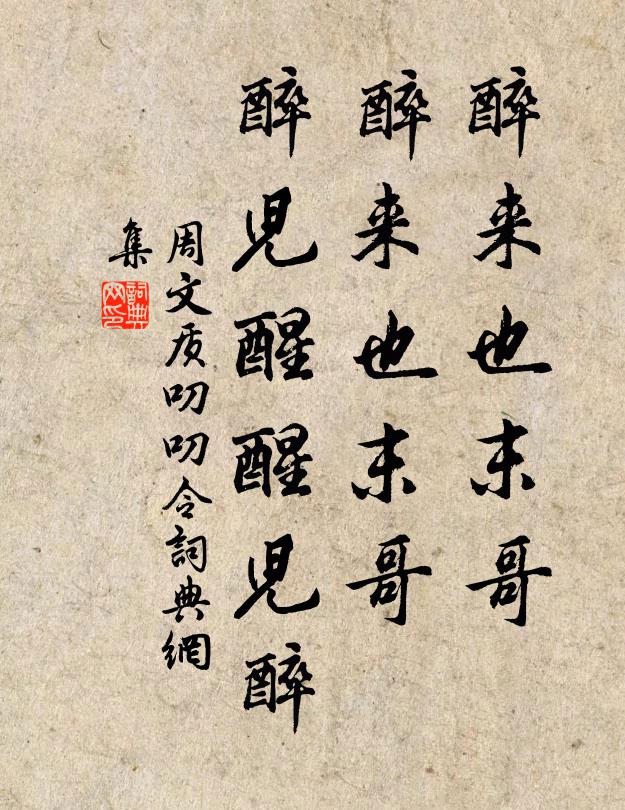 醉来也末哥
醉来也末哥
醉児醒醒児醉
周文质叨叨令詞典網
集
詞典
网印